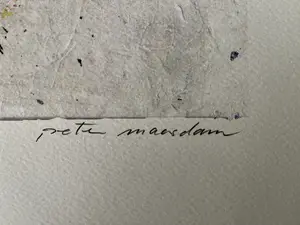 pete maasdam